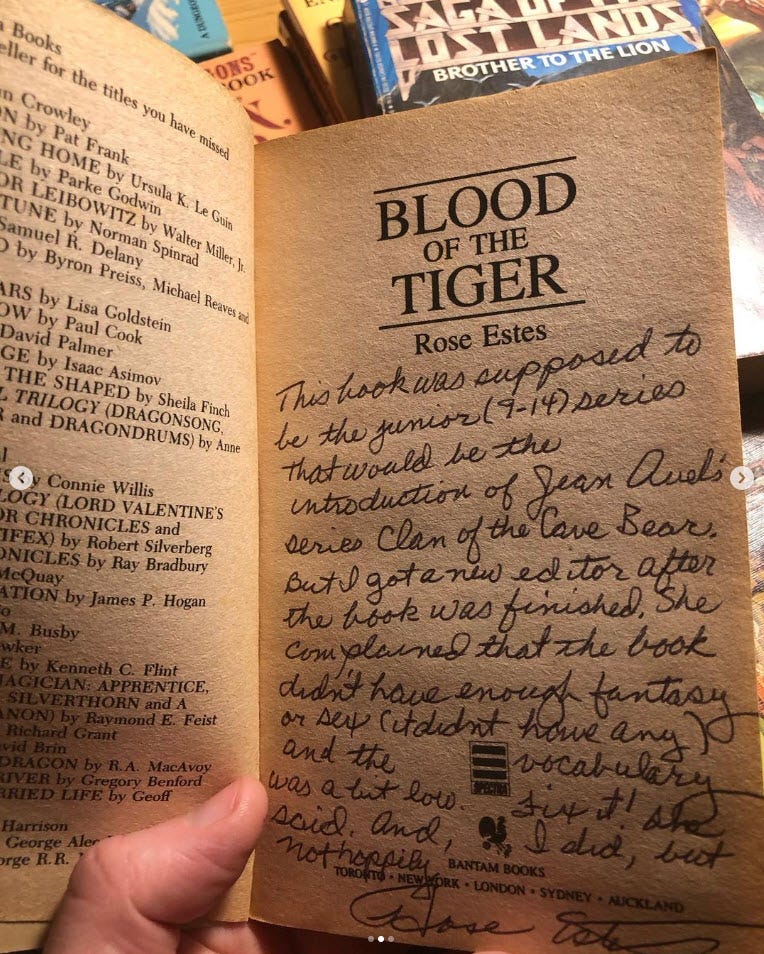 A DUNGEO
ONS
OOK
SAGA OF THE
LOST LANDS
BROTHER TO THE LION
a Books
eller for the titles you have missed
n Crowley
ON by Pat Frank
NG HOME by Ursula K. Le Guin
LE by Parke Godwin
OR LEIBOWITZ by Walter Miller, Jr.
TUNE by Norman Spinrad
Samuel R. Delany
D by Byron Preiss, Michael Reaves and
ARS by Lisa Goldstein
OW by Paul Cook
David Palmer
GE by Isaac Asimov
THE SHAPED by Sheila Finch
L TRILOGY (DRAGONSONG,
R and DRAGONDRUMS) by Anne
al
S by Connie Willis
LOGY (LORD VALENTINE'S
OR CHRONICLES and
IFEX) by Robert Silverberg
ONICLES by Ray Bradbury
McQuay
ATION by James P. Hogan
o
M. Busby
wker
E by Kenneth C. Flint
MAGICIAN: APPRENTICE,
SILVERTHORN and A
ANON) by Raymond E. Feist
Richard Grant
vid Brin
DRAGON by R.A. MacAvoy
RIVER by Gregory Benford
RRIED LIFE by Geoff
Harrison
George Alec
orge R.R.
BLOOD
OF THE
TIGER
Rose Estes
This book was supposed to
be the junior (9-14) series
that would be the
introduction of Jean Auel's
series Clan of the Cave Bear.
But I got a new editor after
the book was finished. She
complained that the book
didn't have enough fantasy
or sex (it didn't have any)
and the vocabulary
SPECTRA
was a bit low. Fix it! she
said. And, I did, but
not happily
BANTAM BOOKS
TORONTO • NEW YORK • LONDON • SYDNEY • AUCKLAND
Rose Estes